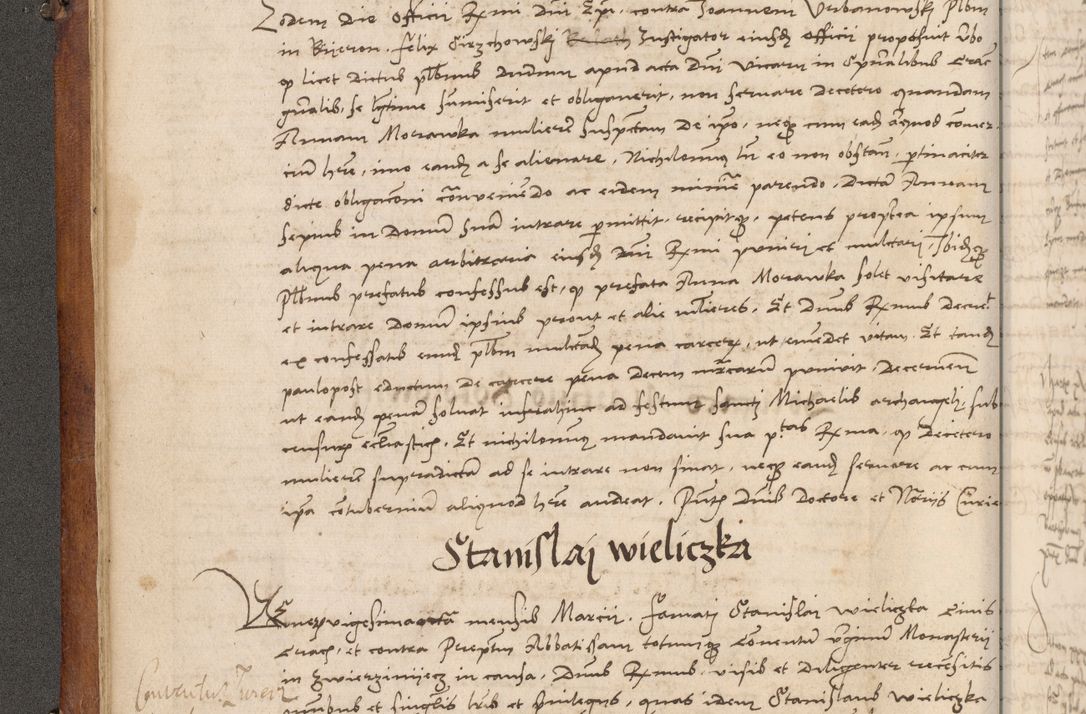 Eodem die officii Rxmi dni Epi, contra Joannem Vrbanowskj Plbm
in Bijeron. Felix Cirzchowskj Instigator eiusdem officii proposuit vbo
q licet dictus plbnus dudum apud acta dni vicarii in spualibus Crac
gnalis, se lgtime submiserit et obligauerit, non seruare decetero quandam
Annam Morawka mulierem suspectam de ipo, neqз cum eadem aliquod comer
cium hre, imo eandem a se alienare, Nichilominus tn eo non obstan. pertinaciter
dicte obligaconi contraueniendo ac eidem minime parendo, dictam Annam
sepius in domum suam intrare permittit, recipitqз, petens propterea ipsum
aliqua pena arbitraria eiusdem dni Rxmi puniri et mulctari. Ibidemqз
Plbnus prefatus confessus est, q prefata Anna Morawka solet visitare
et intrare domum ipsius prout et alie mlieres. Et dnus Rxmus decret
ex confessatis eundem plbm mulctandum pena carceris, ut emendet vitam. Et tandem
paulopost eductum de carcere pena decem marcarum puniuit, decernens
ut eandem penam soluat infrahinc ad festum sancti Michaelis archangeli, sub
censuris eccliasticis. Et nichilominus mandauit sua ptas Rxma, q decetero
mulierem supradictam ad se intrare non sinat, neqз eandem seruare ac cum
ipsa cotubernium aliquod hre audeat. Pntibus dnis doctore et Notariis Curie
Stanislaj wieliczka
Veneris vigesimaquarta mensis Marcii. Famati Stanislai wieliczka Ciuis
Crac. et contra Preptm Abbatissam totumqз Conuentum virginum Monasterii
in Zwierzinijecz in causa. Dnus Rxmus, visis et diligenter recensitis
omnibus et singulis lris et priuilegiis, quas idem Stanislaus wieliczka